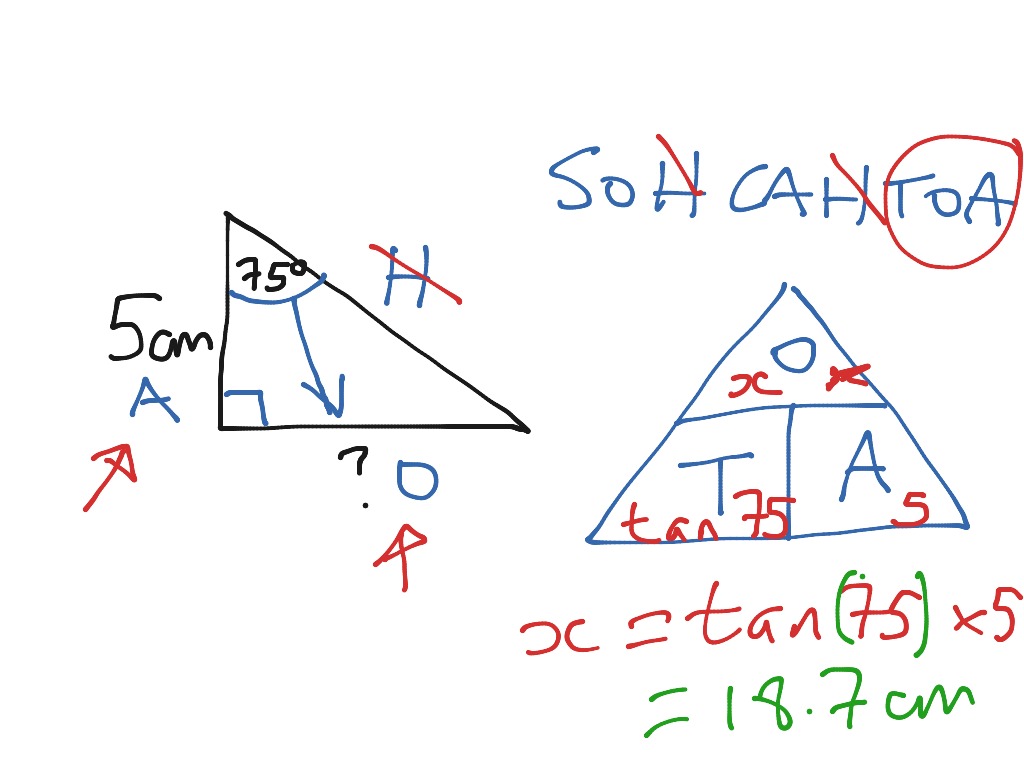 SOH CAH TOA
75°
H
5cm
A
? O
O
x
T A
tan 75 5
x = tan(75) × 5
= 18.7cm